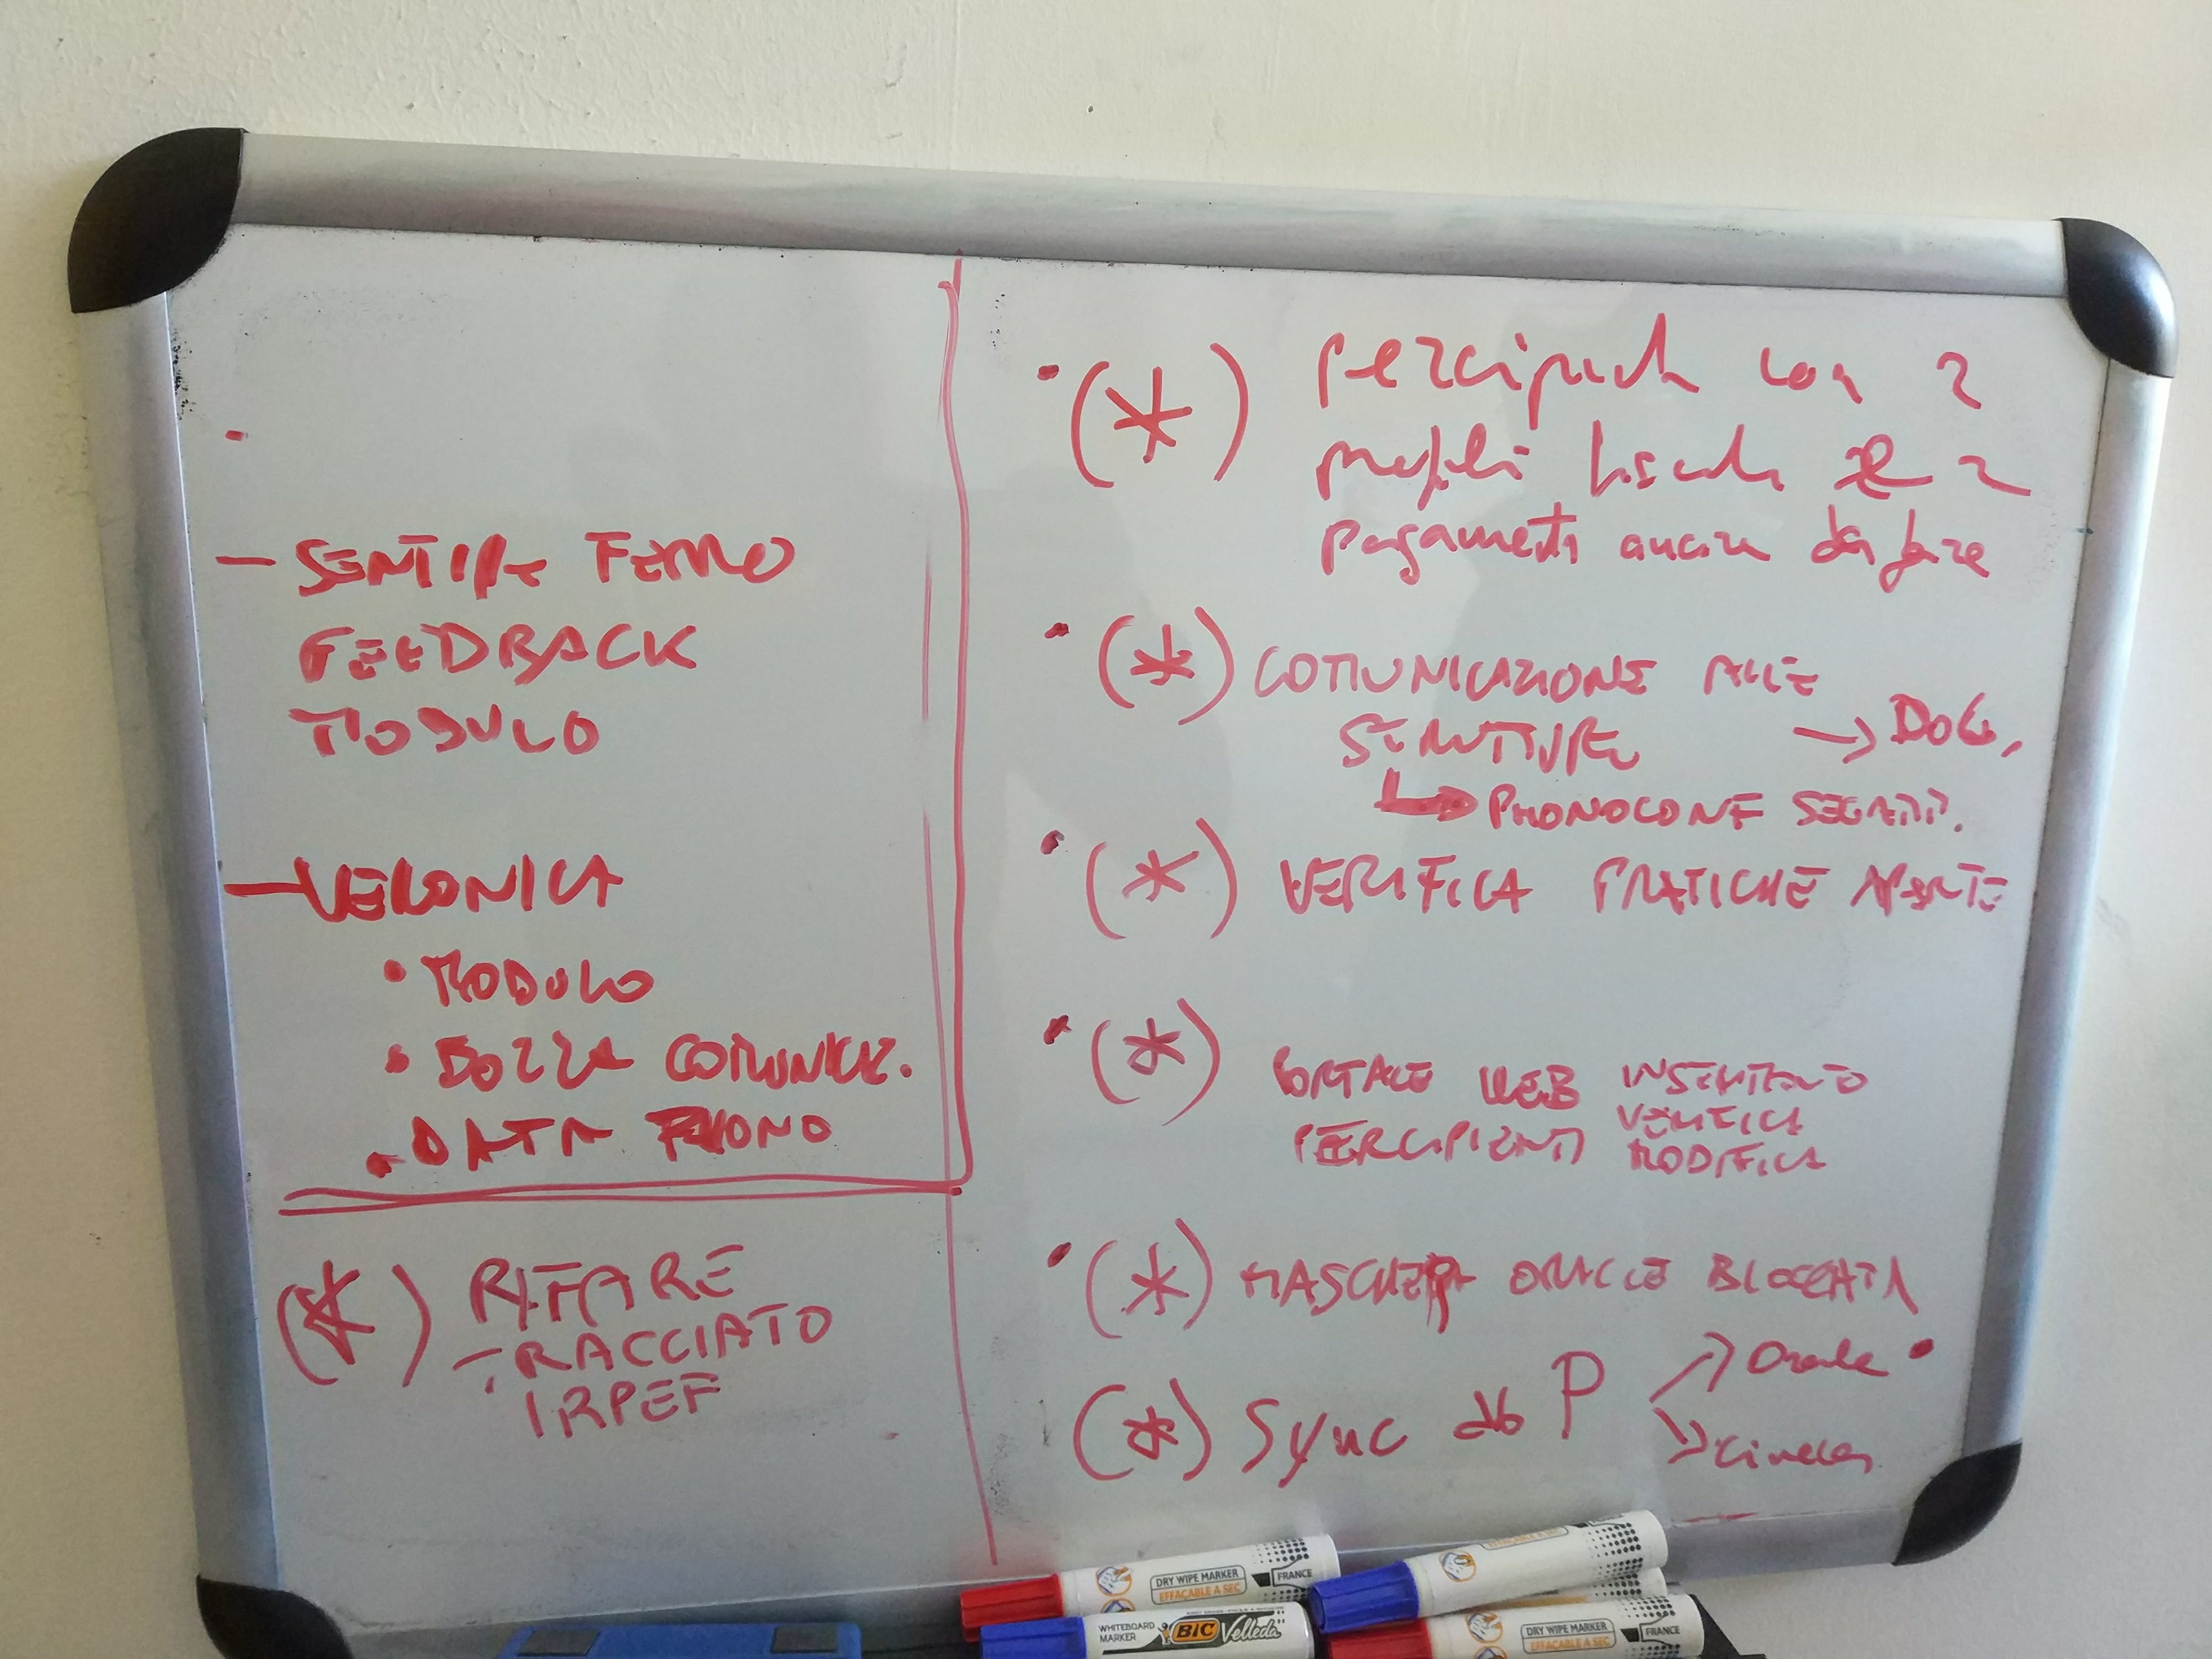 - SENTIRE FERRO
FEEDBACK
MODULO
- VERONICA
• MODULO
• BOZZA COMUNICAZ.
• DATA PHONO
(*) RIFARE
TRACCIATO
IRPEF
• (*) percipienti con 2
profili fiscali e 2
pagamenti ancora da fare
• (*) COMUNICAZIONE ALLE
STRUTTURE → DOC,
↳ PHONOCONF SEGRET.
• (*) VERIFICA PRATICHE APERTE
• (*) PORTALE WEB INSERIMENTO
PERCIPIENTI VERIFICA
MODIFICA
• (*) MASCHERA ORACLE BLOCCATA
(*) Sync db P → Oracle •
→ Cineca
DRY WIPE MARKER
EFFACABLE A SEC
FRANCE
WHITEBOARD
MARKER
BIC Velleda
DRY WIPE MARKER
EFFACABLE A SEC
FRANCE